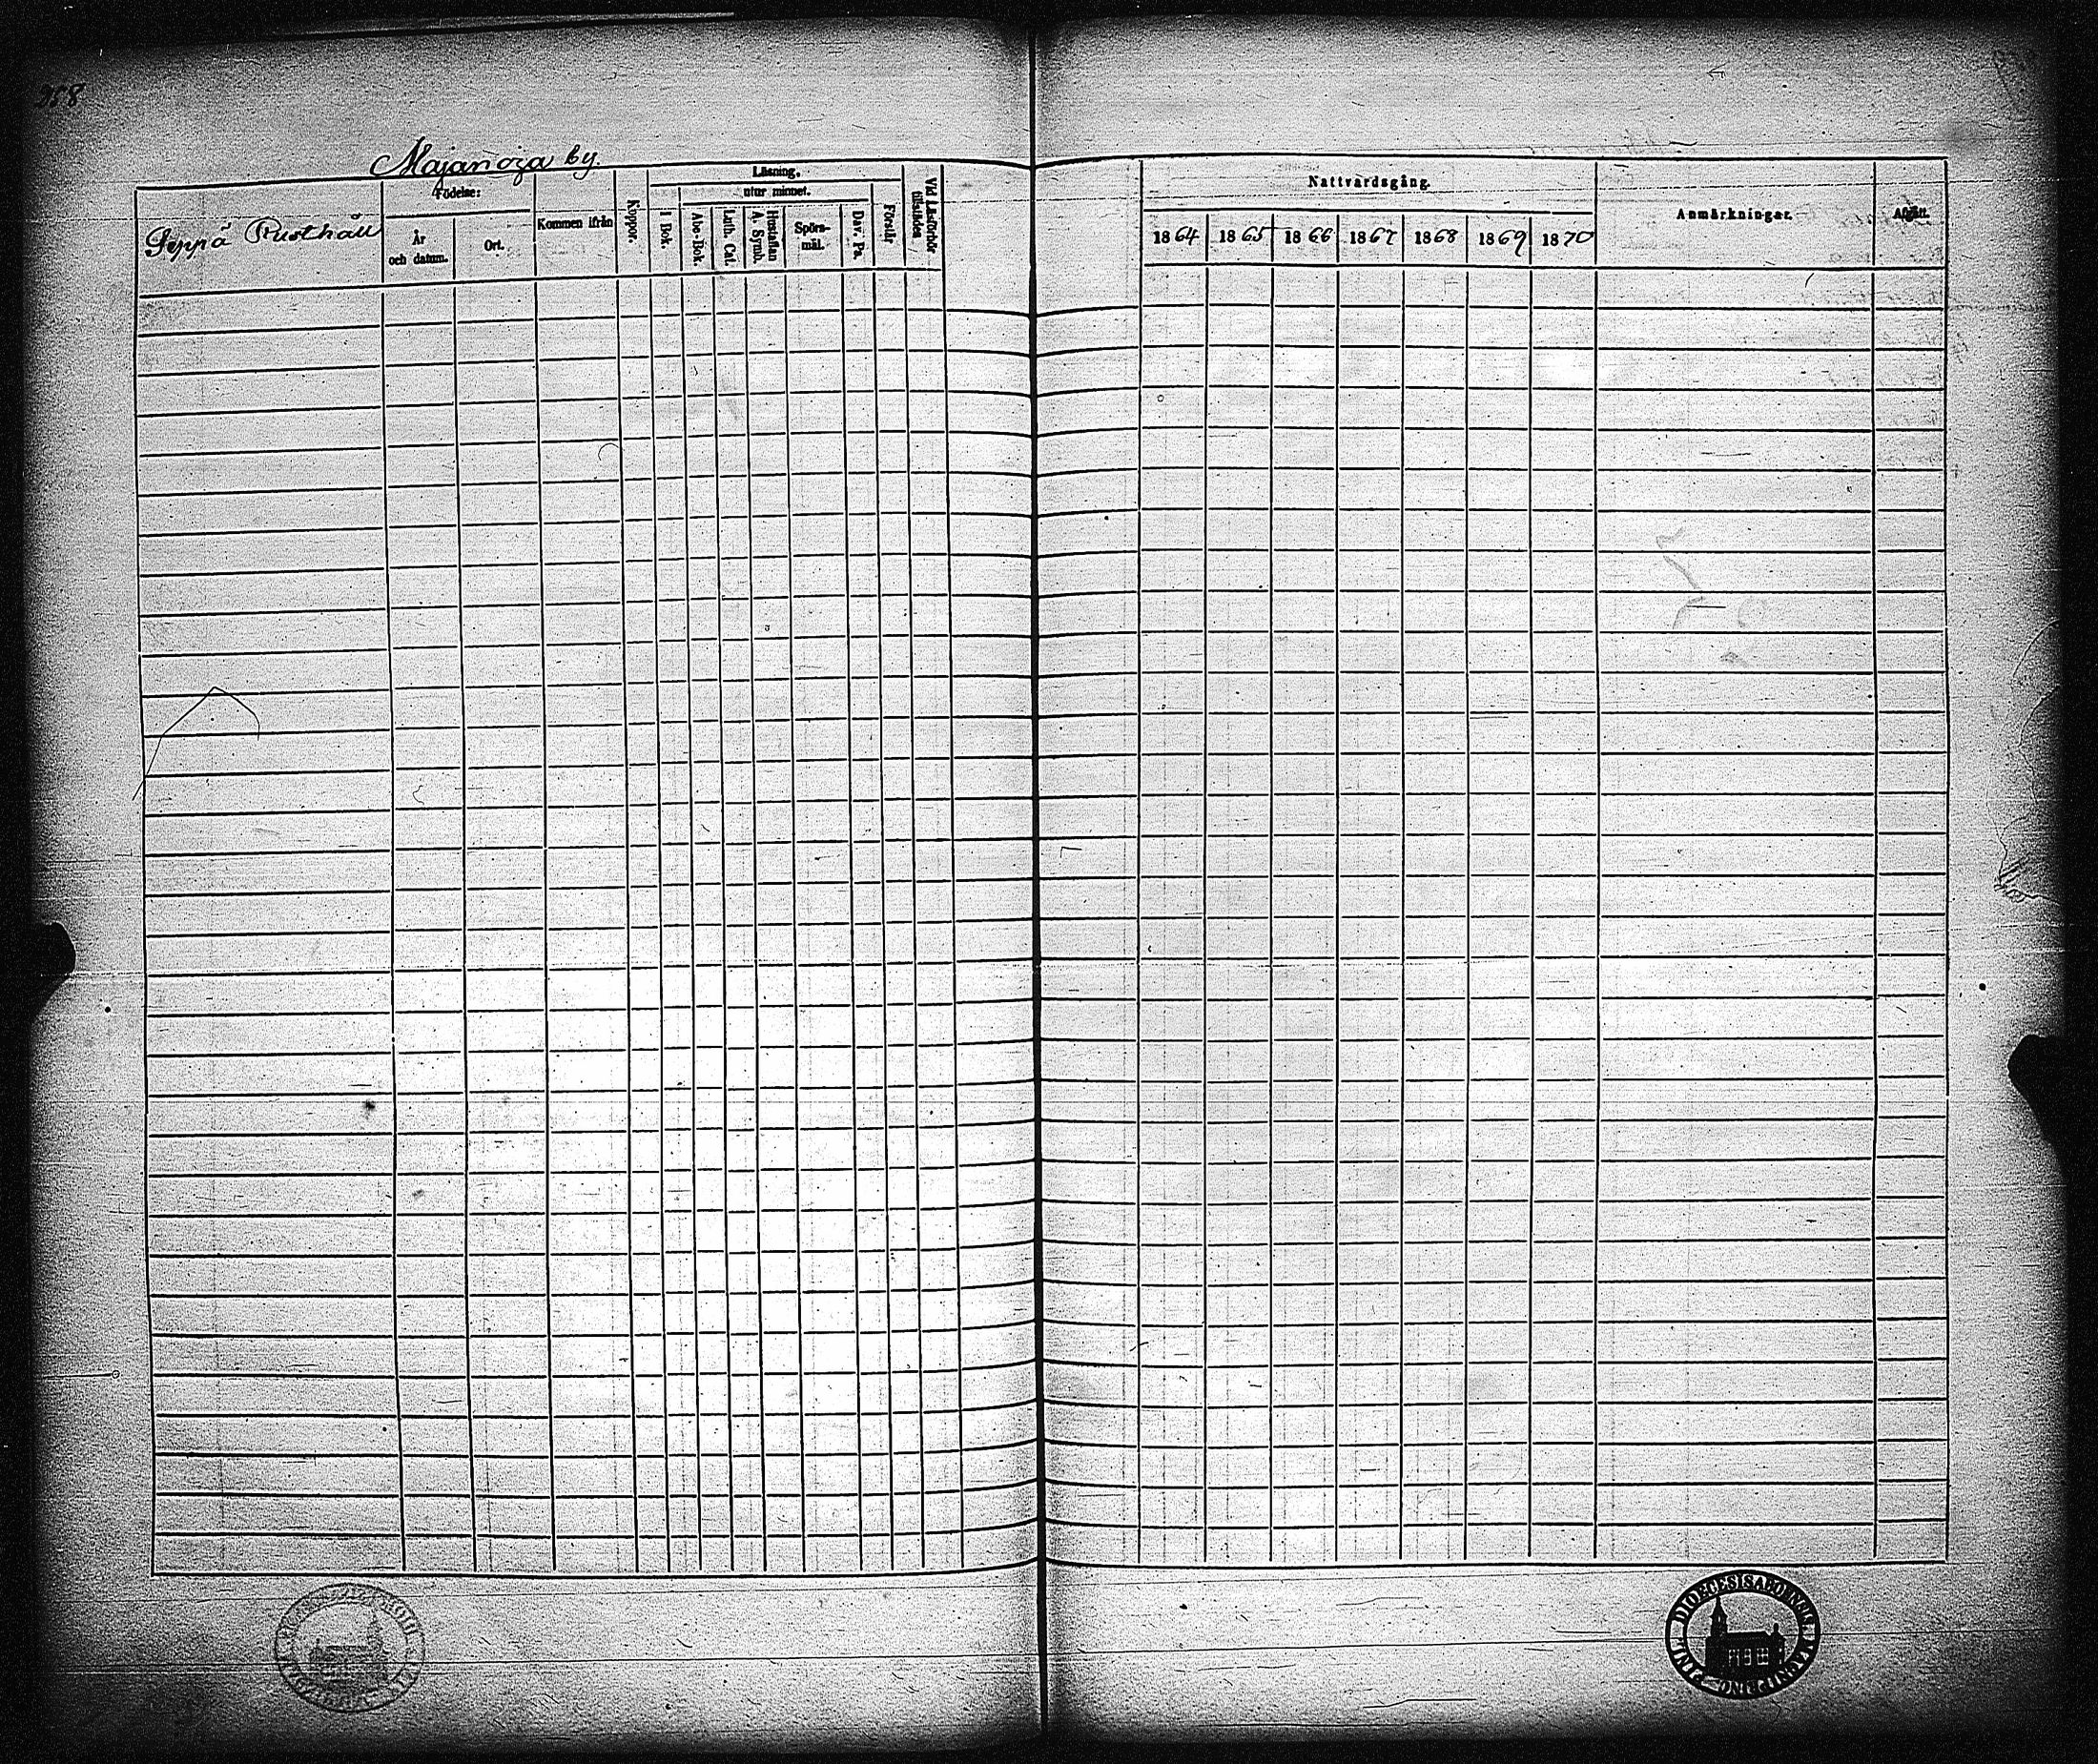 358
Majanoja by.
Seppä Rusthåll
Födelse:
År
och datum.
Ort.
Kommen ifrån
Koppor.
Läsning,
I Bok.
utur minnet.
Abc-Bok.
Luth. Cat.
Hustaflan
A. Symb.
Spörs-
mål.
Dav. Ps.
Förstår
Vid Läsförhör
tillstädes
Nattvardsgång.
1864 1865 1866 1867 1868 1869 1870
Anmärkningar.
Afgått.
DIOECESIS ABOENSIS